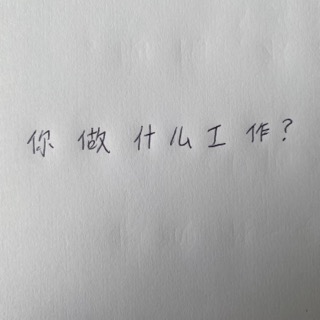 你做什么工作?